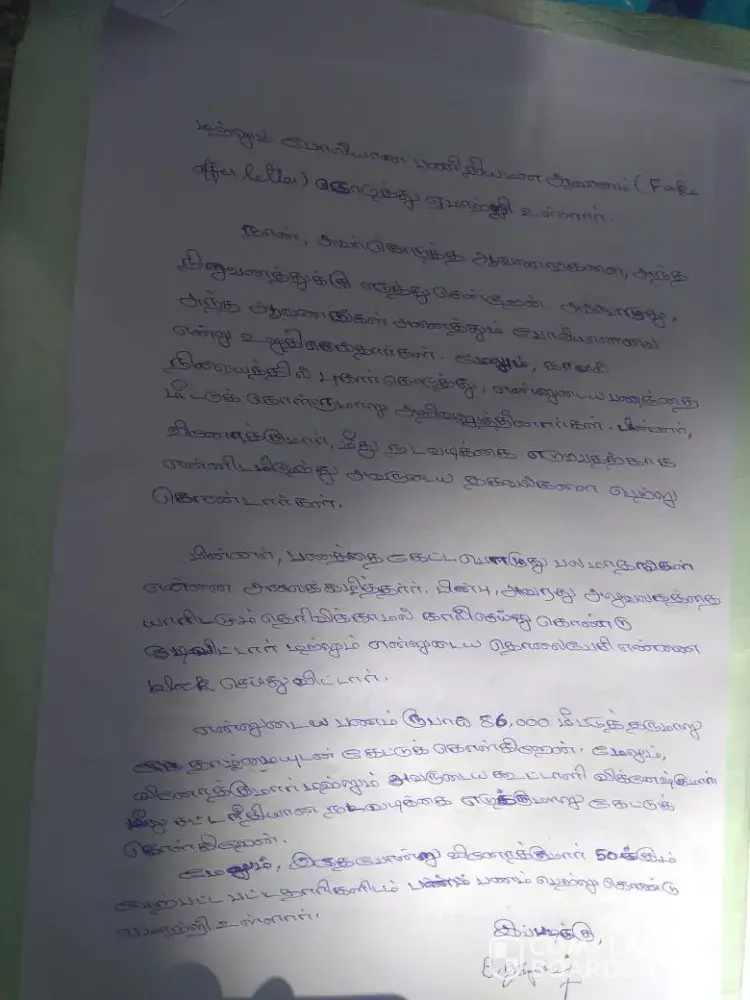 மற்றும் போலியான பணி நியமன ஆவணம் (Fake
offer letter) கொடுத்து ஏமாற்றி உள்ளார்.
நான், அவர் கொடுத்த ஆவணங்களை, அந்த
நிறுவனத்துக்கு எடுத்து சென்றேன். அப்போது,
அந்த ஆவணங்கள் அனைத்தும் போலியானவை
என்று உறுதிசெய்தார்கள். மேலும், காவல்
நிலையத்தில் புகார் கொடுத்து, என்னுடைய பணத்தை
மீட்டுக் கொள்ளுமாறு அறிவுறுத்தினார்கள். பின்னர்,
வினோத்குமார், மீது நடவடிக்கை எடுப்பதற்காக
என்னிடமிருந்து அவருடைய தகவல்களை பெற்று
கொண்டார்கள்.
பின்னர், பணத்தை கேட்ட பொழுது பல மாதங்கள்
என்னை அலைக்கழித்தார். பின்பு, அவரது அலுவலகத்தை
யாரிடமும் தெரிவிக்காமல் காலிசெய்து கொண்டு
மற்றும் என்னுடைய தொலைபேசி எண்ணை
block செய்து விட்டார்.
என்னுடைய பணம் ரூபாய் 86,000 மீட்டுத் தருமாறு
தாழ்மையுடன் கேட்டுக் கொள்கிறேன். மேலும்,
வினோத்குமார் மற்றும் அவருடைய கூட்டாளி விக்னேஷ்குமார்
மீது சட்ட ரீதியான நடவடிக்கை எடுக்குமாறு கேட்டுக்
கொள்கிறேன்.
மேலும், இதேபோன்று வினோத்குமார் 50க்கும்
மேற்பட்ட பட்டதாரிகளிடம் பணம் பெற்று கொண்டு
ஏமாற்றி உள்ளார்.
இப்படிக்கு,
COMPLAINT
BOARDS